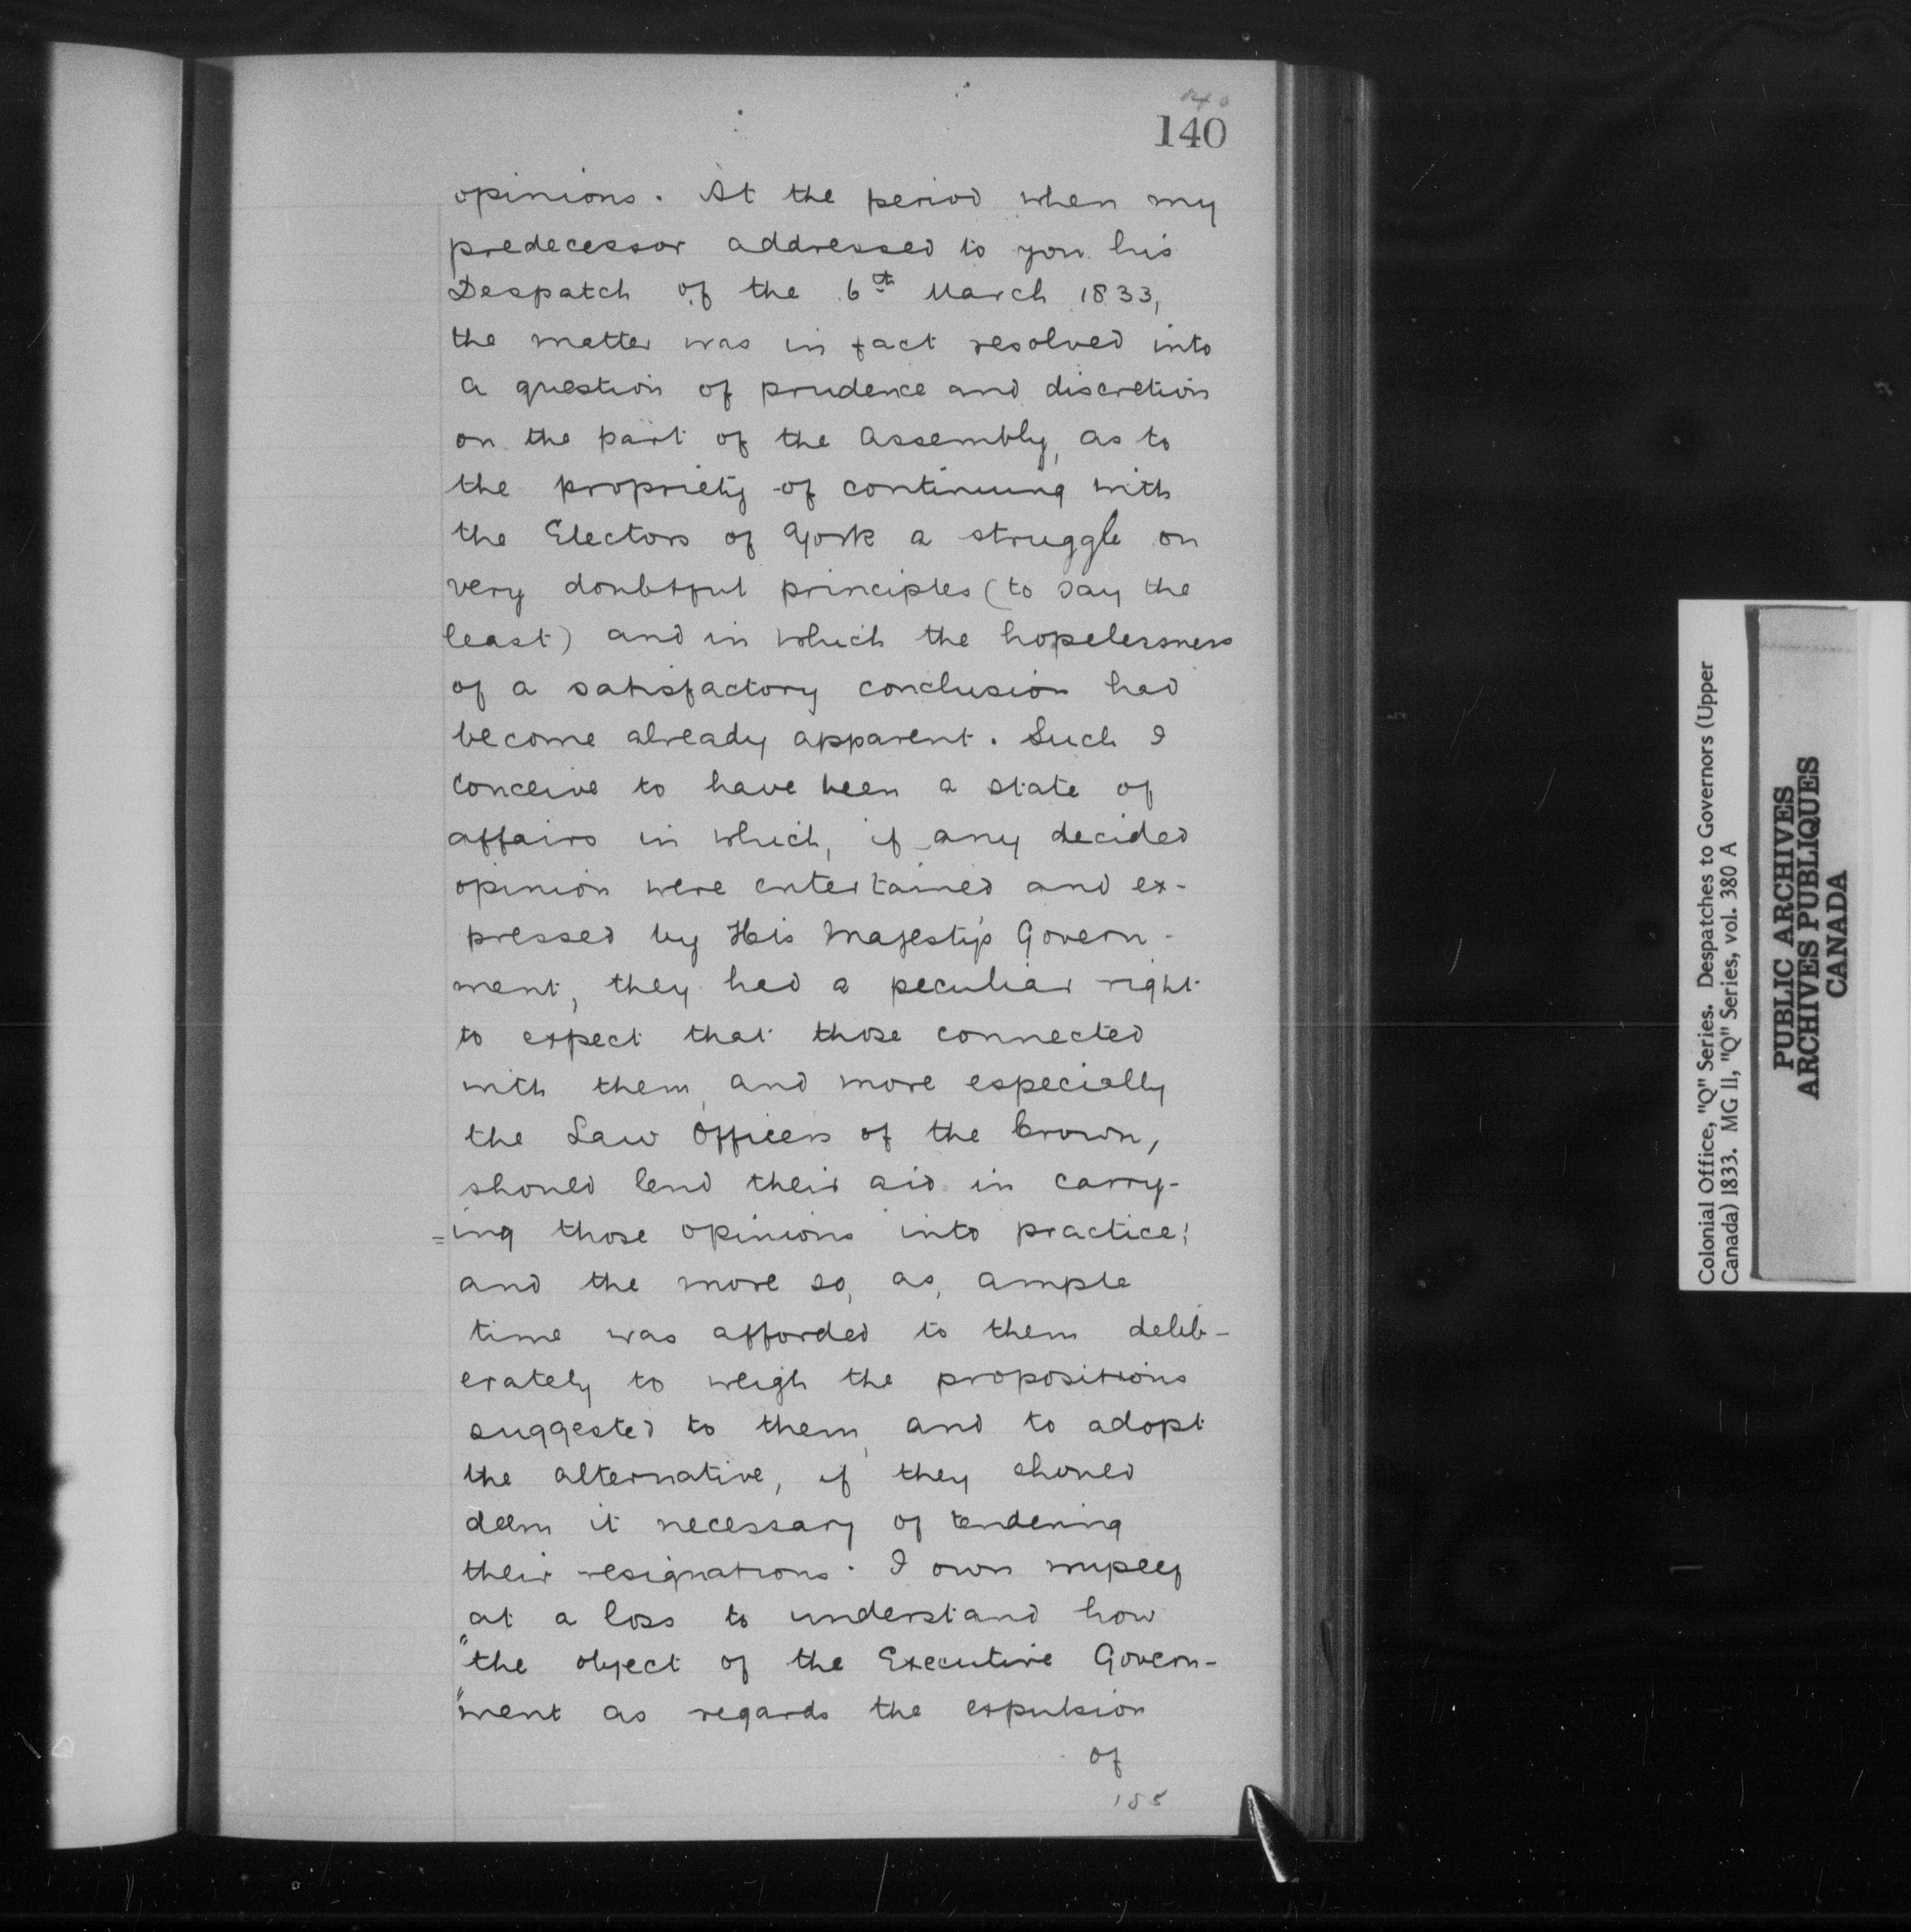 140
140
opinions. At the period when my
predecessor addressed to you his
Despatch of the 6th March 1833,
the matter was in fact resolved into
a question of prudence and discretion
on the part of the Assembly, as to
the propriety of continuing with
the Electors of York a struggle on
very doubtful principles (to say the
least) and in which the hopelessness
of a satisfactory conclusion had
become already apparent. Such I
conceive to have been a state of
affairs in which, if any decided
opinion were entertained and ex-
pressed by His Majesty's Govern-
ment, they had a peculiar right
to expect that those connected
with them, and more especially
the Law Officers of the Crown,
should lend their aid in carry-
=ing those opinions into practice;
and the more so, as, ample
time was afforded to them delib-
erately to weigh the propositions
suggested to them, and to adopt
the alternative, if they should
deem it necessary of tendering
their resignations. I own myself
at a loss to understand how
"the object of the Executive Govern-
"ment as regards the expulsion
of
185
Colonial Office, "Q" Series. Despatches to Governors (Upper
Canada) 1833. MG 11, "Q" Series, vol. 380 A
PUBLIC ARCHIVES
ARCHIVES PUBLIQUES
CANADA